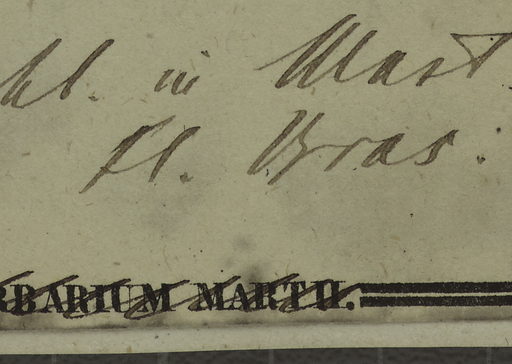 in Mart
fl. Bras.
RBARIUM MARTII.